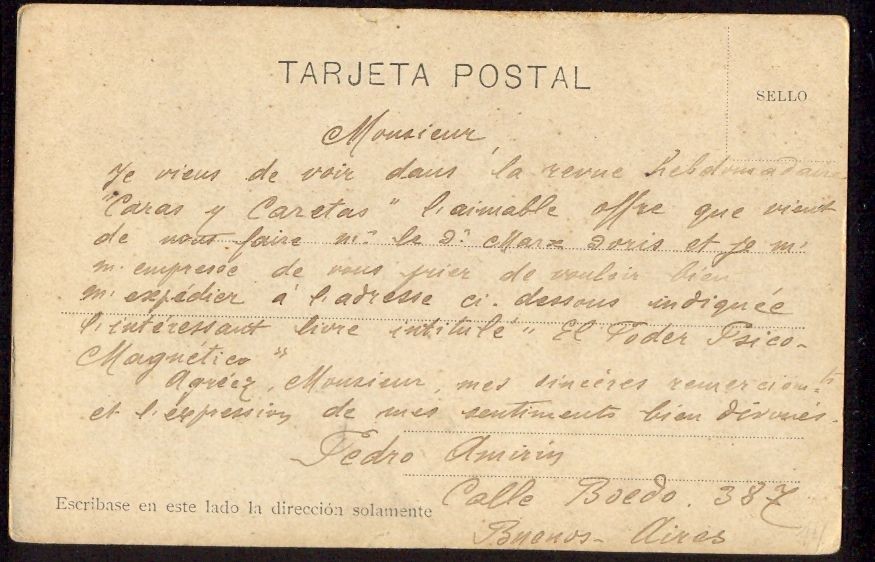 TARJETA POSTAL
SELLO
Monsieur,
Je viens de voir dans la revue hebdomadaire
"Caras y Caretas" l'aimable offre que vient
de nous faire Mr. le Dr. Marx Doris et je m'
m'empresse de vous prier de vouloir bien
m'expédier à l'adresse ci-dessous indiquée
l'intéressant livre intitulé "El Poder Psico-
Magnético"
Agréez, Monsieur, mes sincères remerciemts
et l'expression de mes sentiments bien dévoués.
Pedro
Calle Boedo. 387
Escribase en este lado la dirección solamente
Buenos-Aires